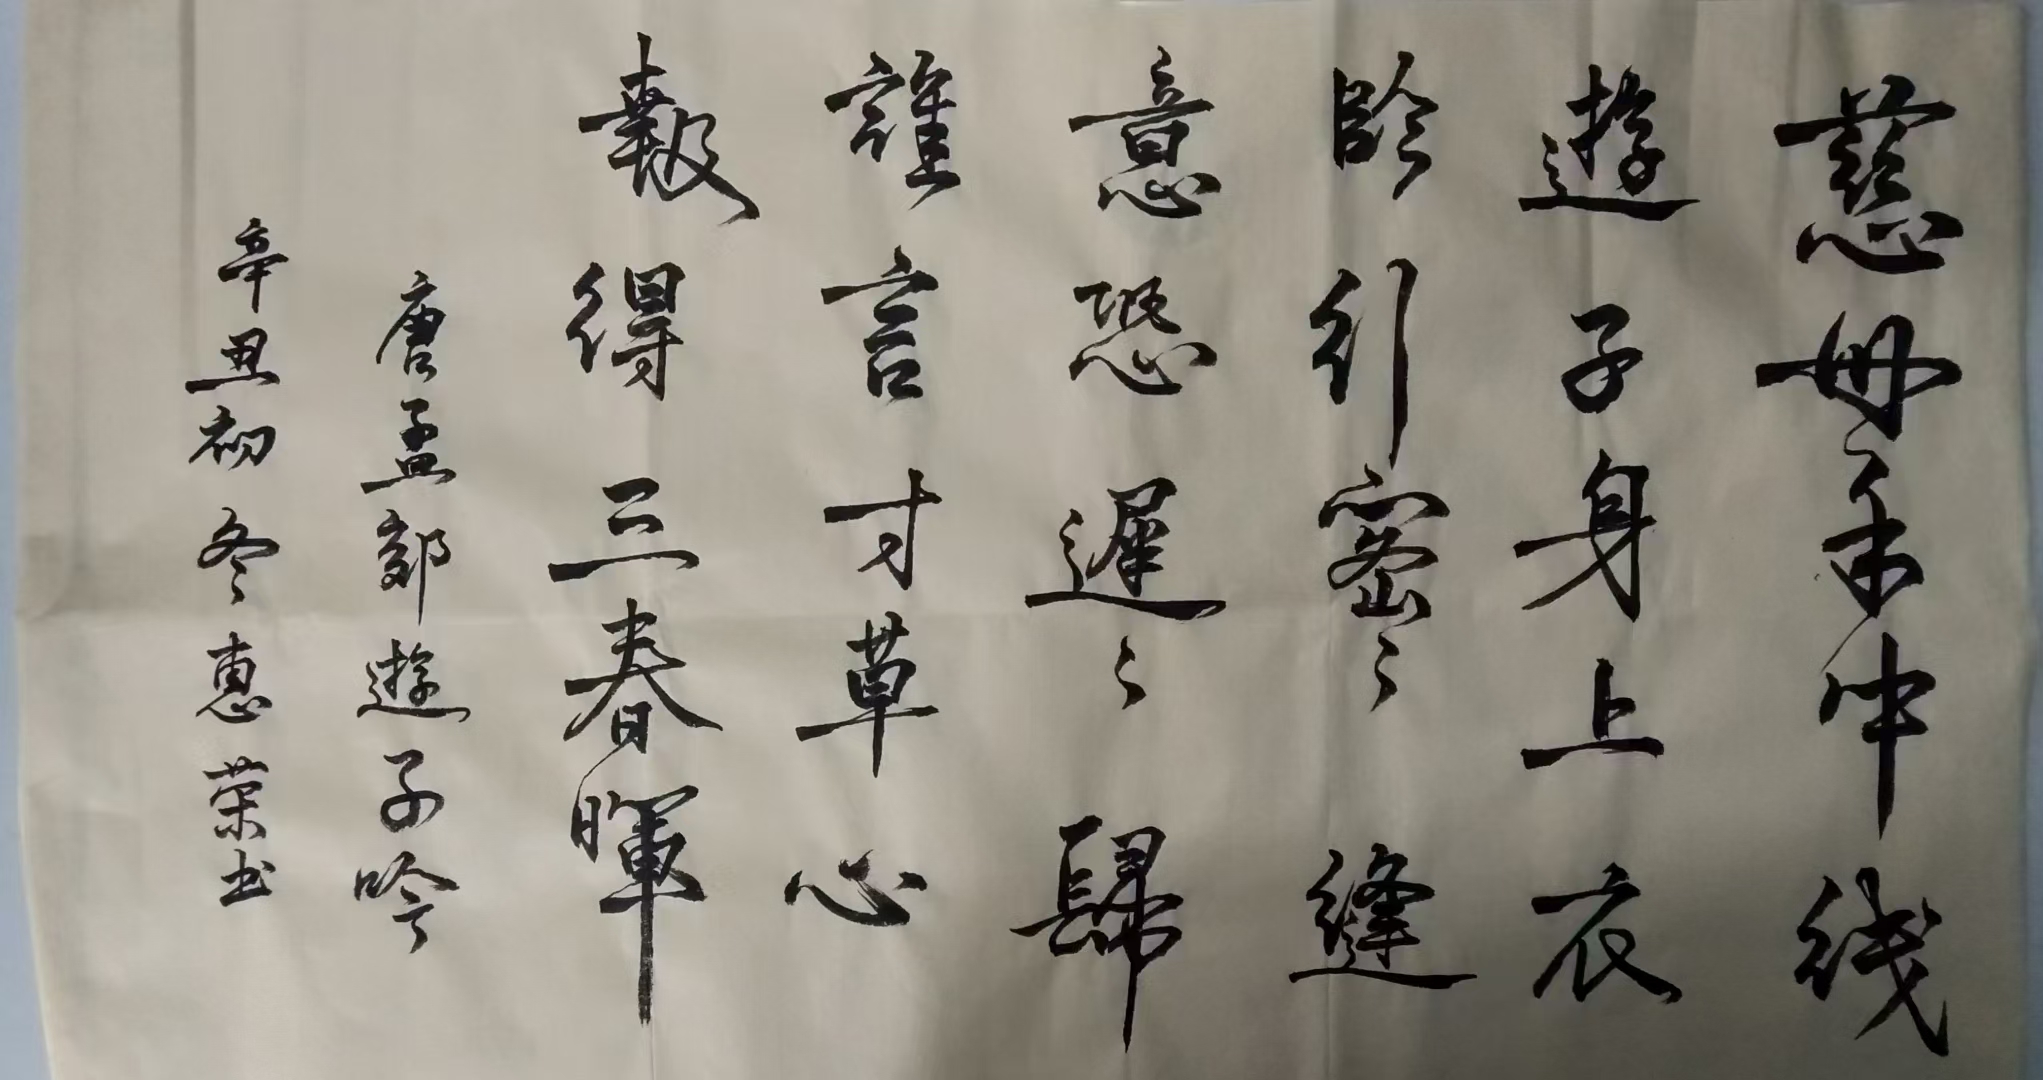 慈母手中线
遊子身上衣
臨行密々縫
意恐遲々歸
誰言寸草心
報得三春暉
唐孟郊遊子吟
辛丑初冬惠荣书